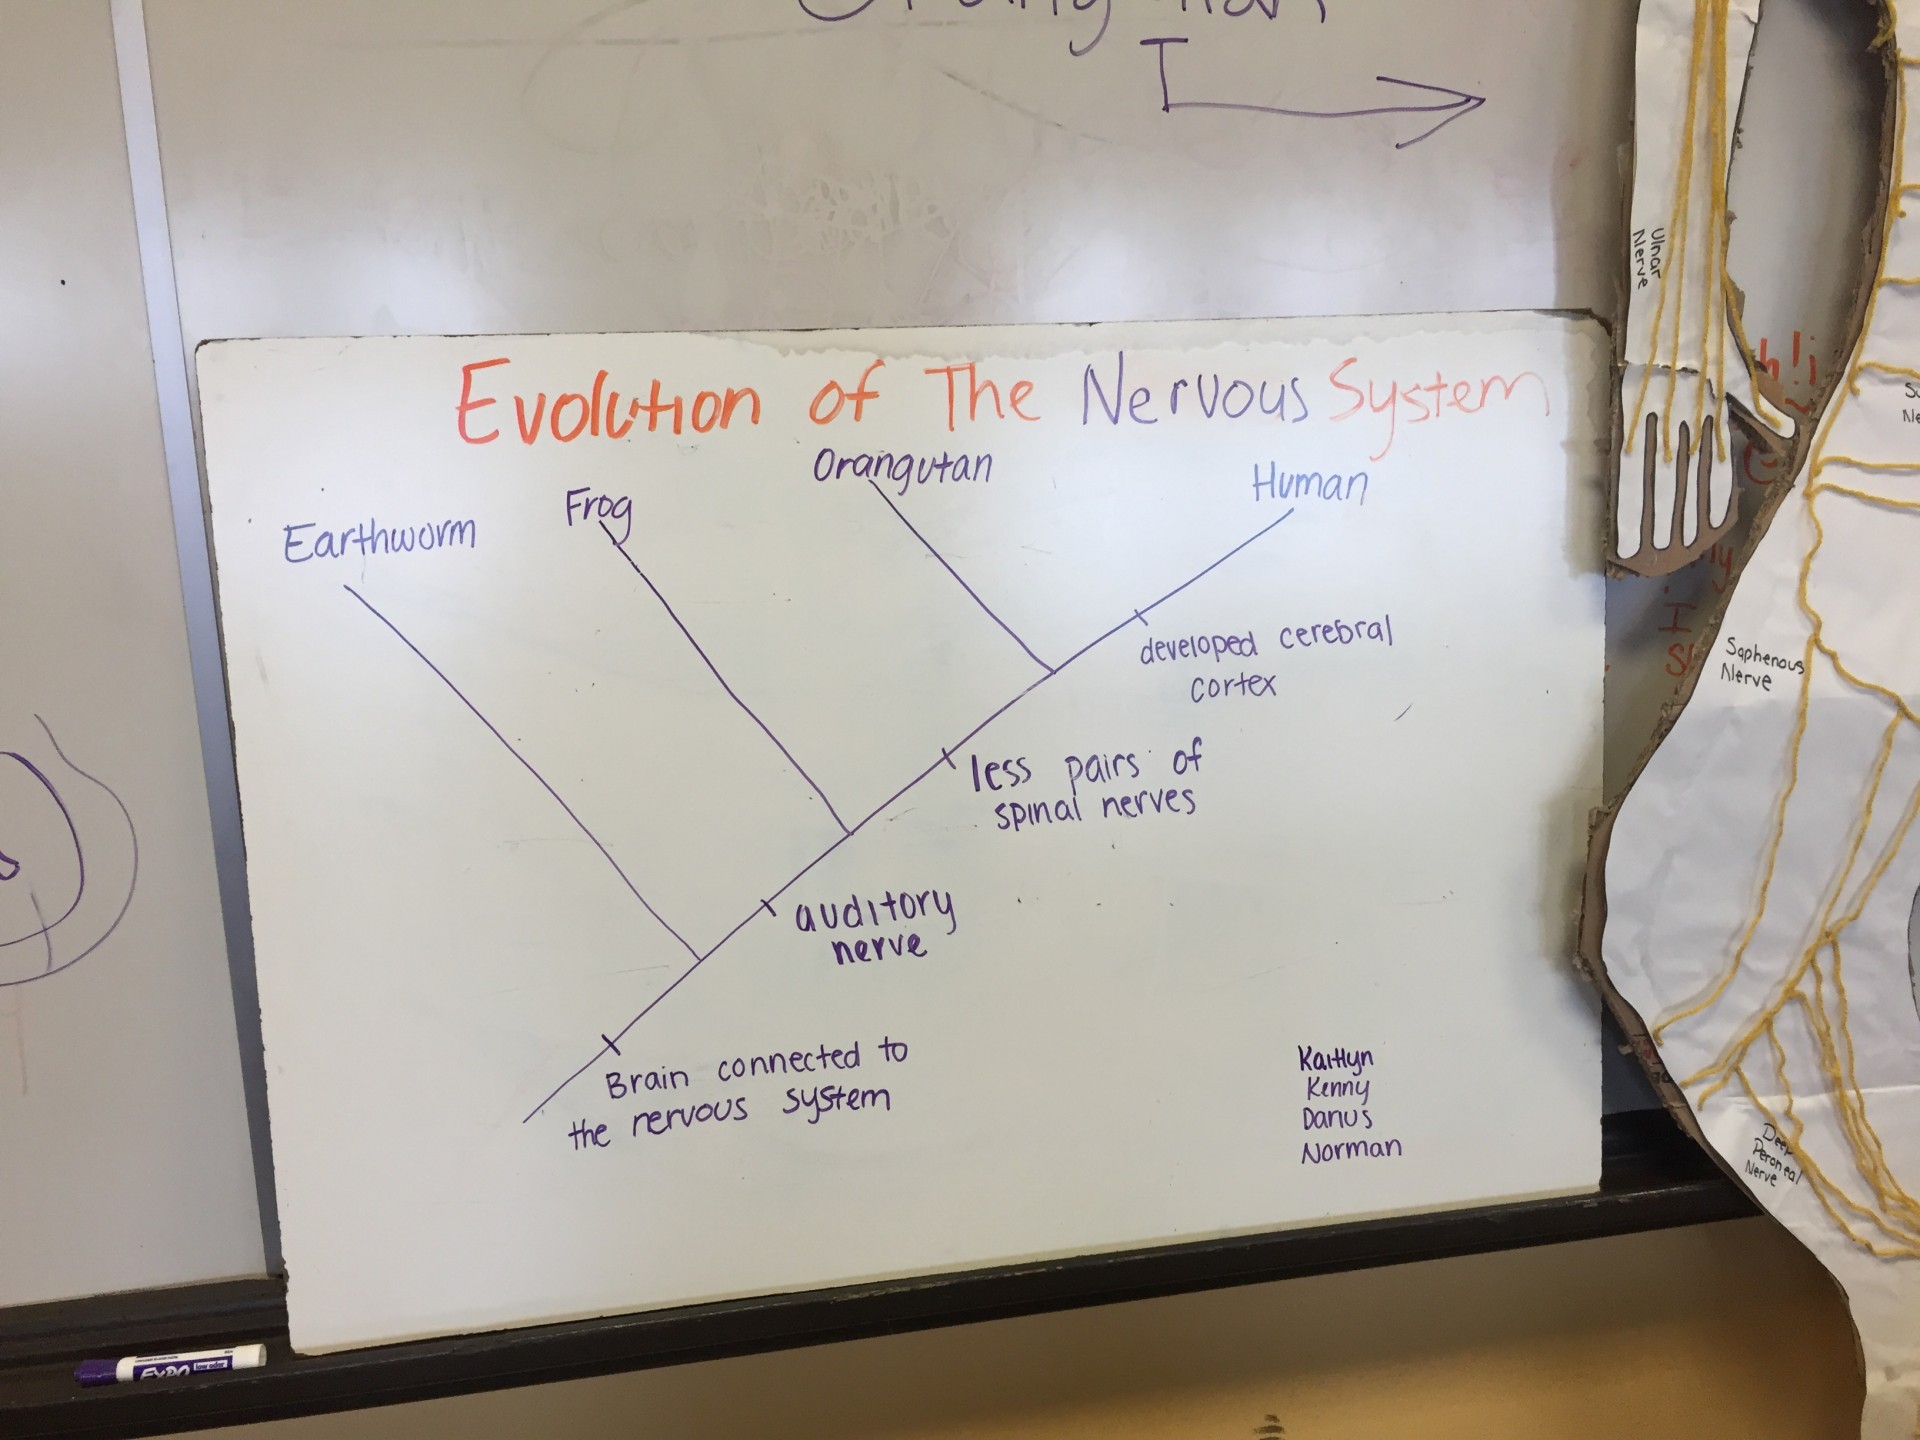 Evolution of The Nervous System
Earthworm
Frog
Orangutan
Human
developed cerebral
cortex
less pairs of
spinal nerves
auditory
nerve
Brain connected to
the nervous system
Kaitlyn
Kenny
Danus
Norman
Ulnar
Nerve
Saphenous
Nerve
Deep
Peroneal
Nerve
EXPO low odor